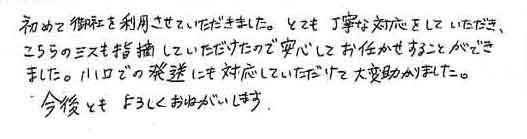 初めて御社を利用させていただきました。とても丁寧な対応をしていただき、
こちらのミスも指摘していただけたので安心してお任せすることができ
ました。小口での発送にも対応していただけて大変助かりました。
今後ともよろしくおねがいします.